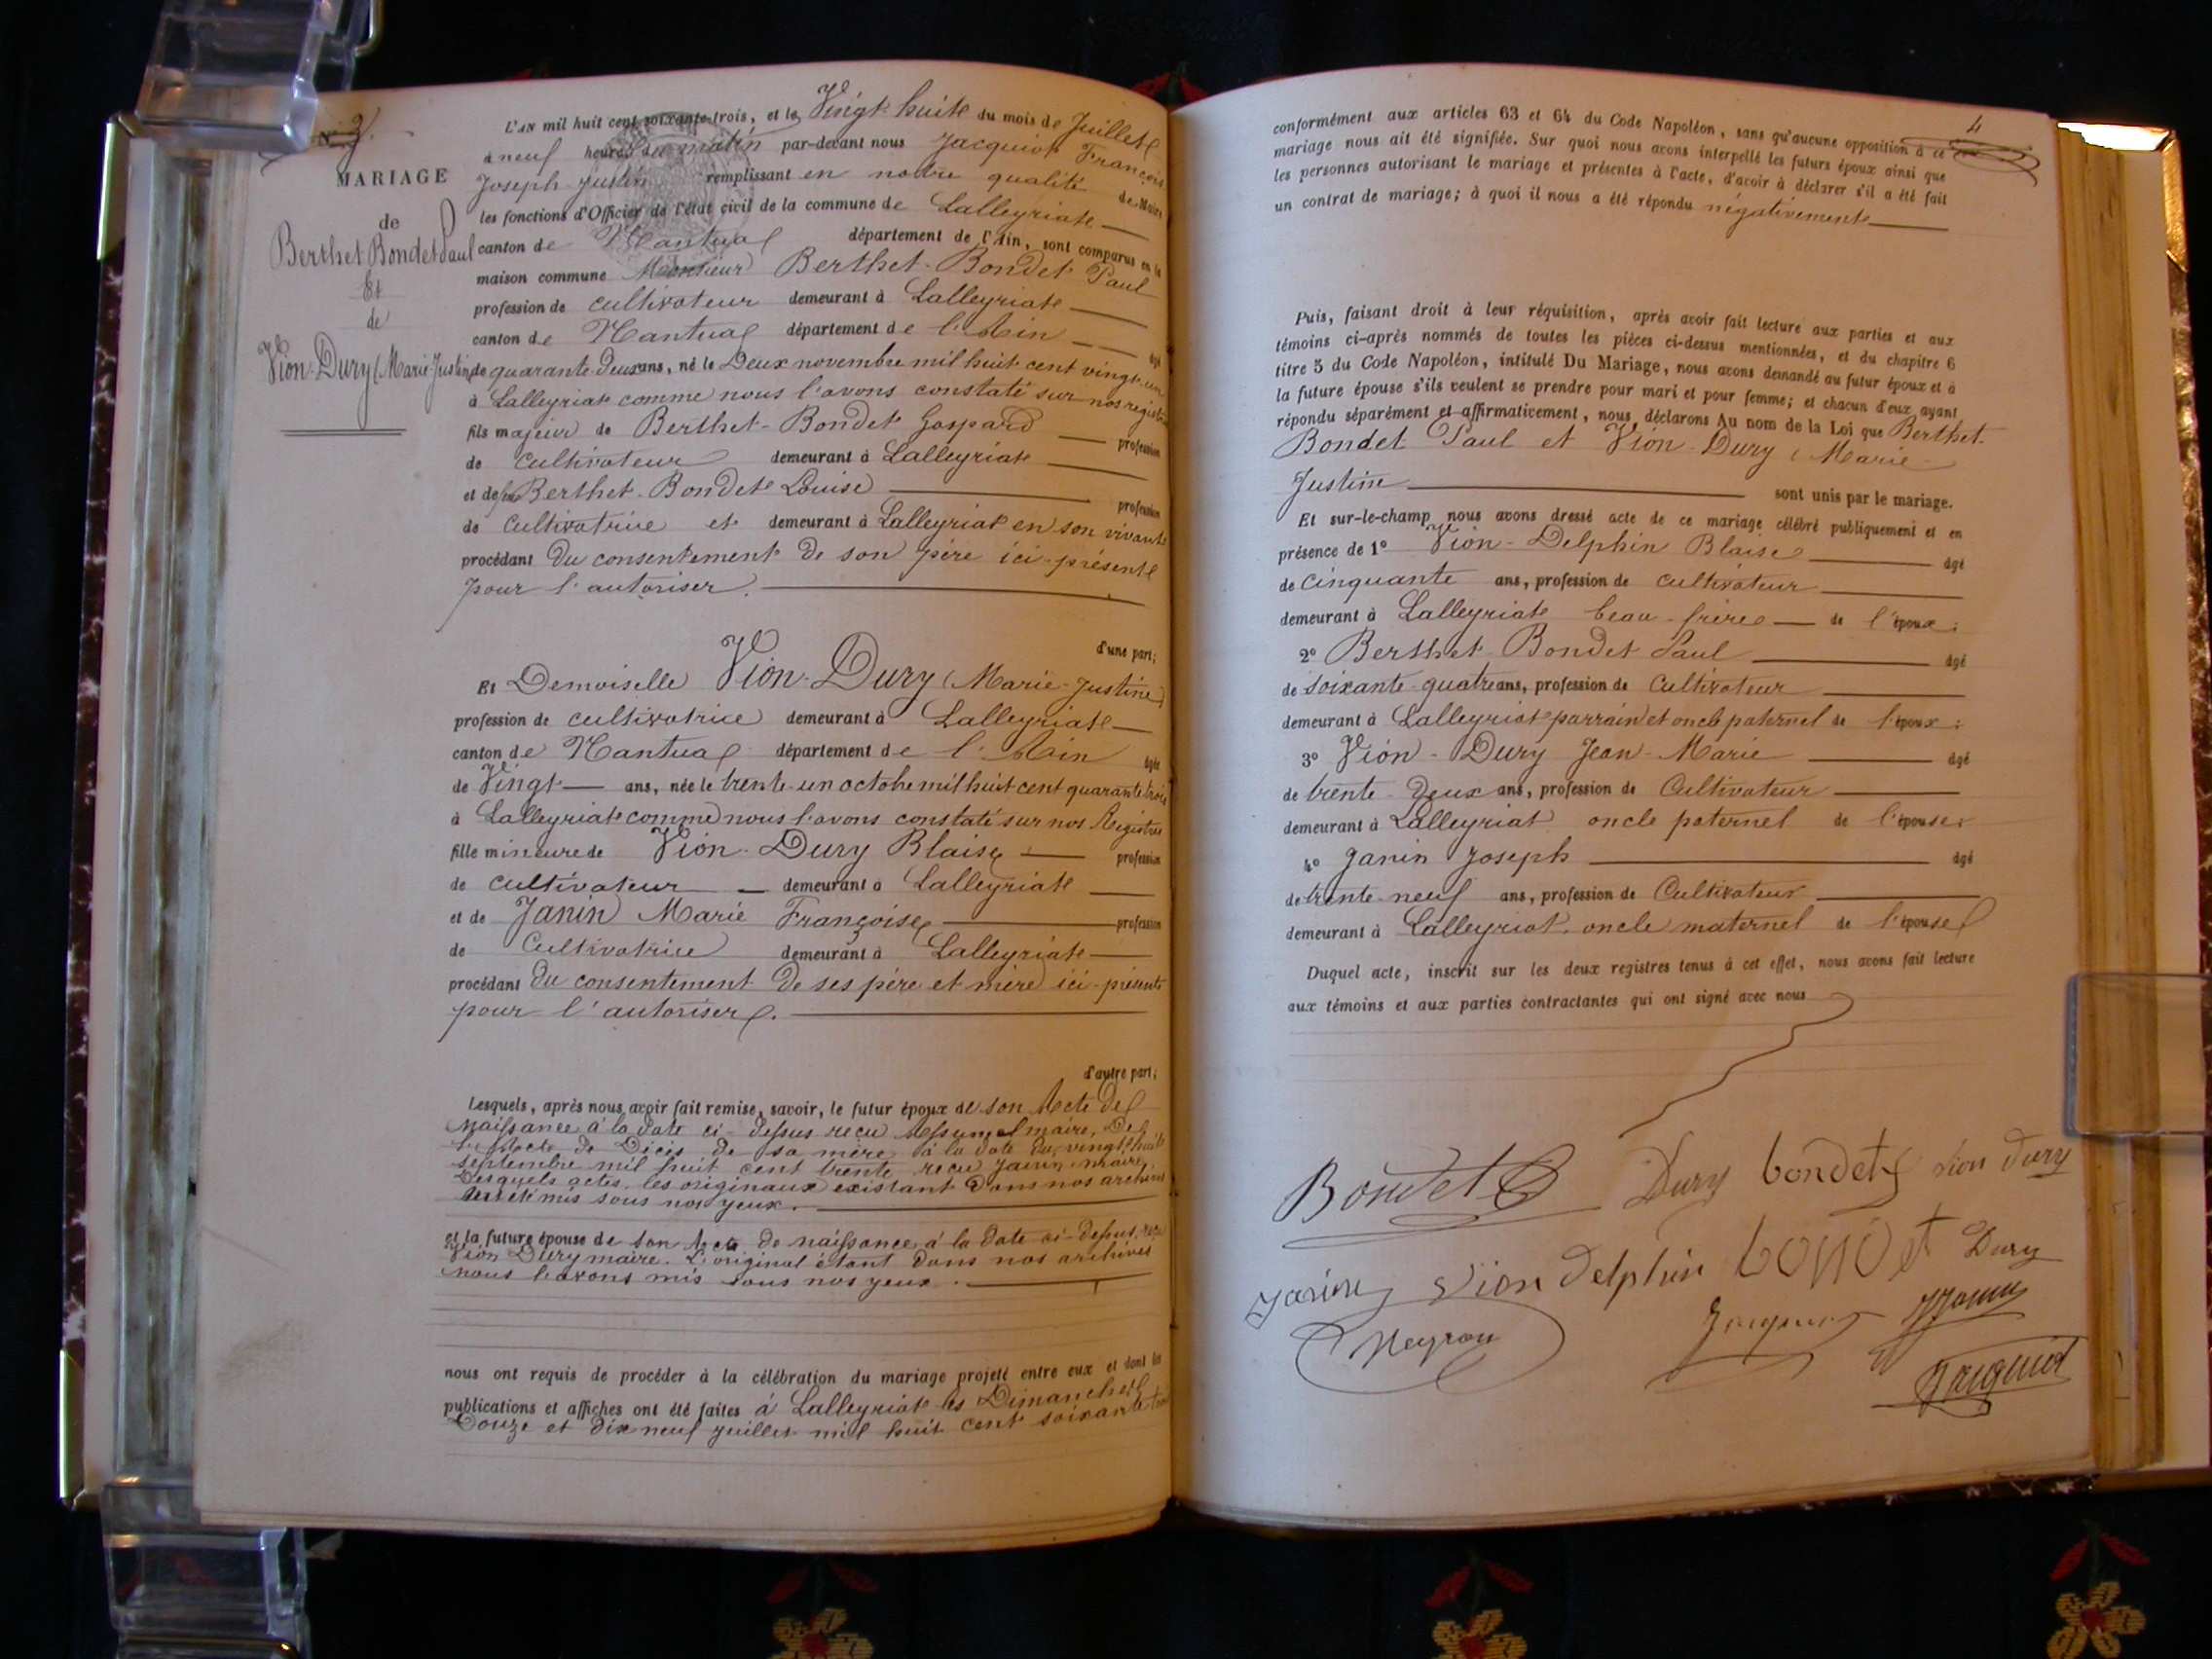 N° 3.
MARIAGE
de
Berthet Bondet Paul
Et
de
Vion-Dury (Marie-Justine)
L'AN mil huit cent soixante-trois, et le Vingt huite du mois de Juillet
à neuf heures du matin par-devant nous Jacquiot François
Joseph Justin remplissant en notre qualité de Maire
les fonctions d'Officier de l'état civil de la commune de Lalleyriate
canton de Nantua département de l'Ain, sont comparus en la
maison commune Monsieur Berthet-Bondet Paul
profession de cultivateur demeurant à Lalleyriate
canton de Nantua département de l'Ain âgé
de quarante-deux ans, né le Deux novembre mil huit cent vingt-un
à Lalleyriat comme nous l'avons constaté sur nos registres
fils majeur de Berthet-Bondet Gaspard profession
de cultivateur demeurant à Lalleyriate
et de feu Berthet-Bondet Louise profession
de cultivatrice et demeurant à Lalleyriat en son vivant
procédant du consentement de son père ici-présent
pour l'autoriser.
d'une part;
Et Demoiselle Vion-Dury (Marie-Justine)
profession de cultivatrice demeurant à Lalleyriate
canton de Nantua département de l'Ain âgée
de Vingt ans, née le trente-un octobre mil huit cent quarante trois
à Lalleyriat comme nous l'avons constaté sur nos Registres
fille mineure de Vion-Dury Blaise profession
de cultivateur demeurant à Lalleyriate
et de Janin Marie Françoise profession
de Cultivatrice demeurant à Lalleyriate
procédant du consentement de ses père et mère ici-présents
pour l'autoriser.
d'autre part;
Lesquels, après nous avoir fait remise, savoir, le futur époux de son Acte de
Naissance à la date ci-dessus reçu maire, De
l'Acte de Décès de sa mère à la date du vingt-huit
septembre mil huit cent trente reçu Janin maire,
Desquels actes, les originaux existant dans nos archives
mis sous nos yeux.
et la future épouse de son Acte de naissance à la date ci-dessus, reçu
Vion Dury maire. L'original étant dans nos archives
nous l'avons mis sous nos yeux.
nous ont requis de procéder à la célébration du mariage projeté entre eux et dont les
publications et affiches ont été faites à Lalleyriat les Dimanches
Douze et dix neuf juillet mil huit cent soixante-trois
4
conformément aux articles 63 et 64 du Code Napoléon, sans qu'aucune opposition à ce
mariage nous ait été signifiée. Sur quoi nous avons interpellé les futurs époux ainsi que
les personnes autorisant le mariage et présentes à l'acte, d'avoir à déclarer s'il a été fait
un contrat de mariage; à quoi il nous a été répondu négativement
Puis, faisant droit à leur réquisition, après avoir fait lecture aux parties et aux
témoins ci-après nommés de toutes les pièces ci-dessus mentionnées, et du chapitre 6
titre 5 du Code Napoléon, intitulé Du Mariage, nous avons demandé au futur époux et à
la future épouse s'ils veulent se prendre pour mari et pour femme; et chacun d'eux ayant
répondu séparément et affirmativement, nous déclarons Au nom de la Loi que Berthet-
Bondet Paul et Vion-Dury (Marie-
Justine sont unis par le mariage.
Et sur-le-champ nous avons dressé acte de ce mariage célébré publiquement et en
présence de 1° Vion-Delphin Blaise âgé
de cinquante ans, profession de cultivateur
demeurant à Lalleyriate beau-frère de l'époux;
2° Berthet-Bondet Paul âgé
de soixante-quatre ans, profession de Cultivateur
demeurant à Lalleyriat parrain et oncle paternel de l'époux;
3° Vion-Dury Jean-Marie âgé
de trente-deux ans, profession de Cultivateur
demeurant à Lalleyriat oncle paternel de l'épouse;
4° Janin Joseph âgé
de trente-neuf ans, profession de Cultivateur
demeurant à Lalleyriat. oncle maternel de l'épouse
Duquel acte, inscrit sur les deux registres tenus à cet effet, nous avons fait lecture
aux témoins et aux parties contractantes qui ont signé avec nous
Bondet Dury bondet vion Dury
Vion Delphin bondet Dury
Neyron
Jacquiot